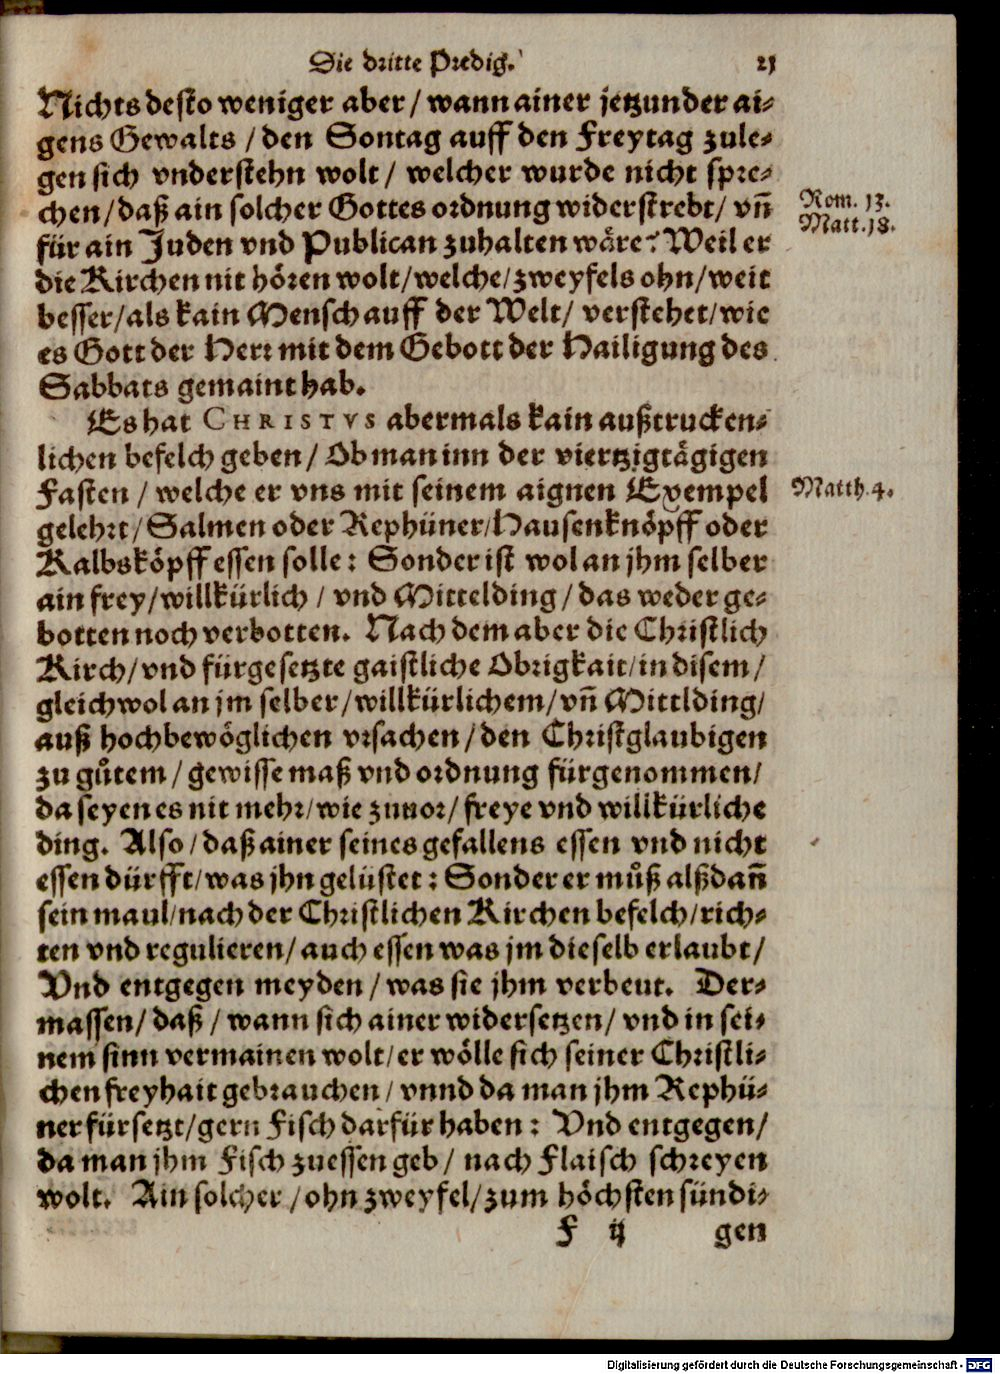 Die dritte Predig. 21
Nichts desto weniger aber / wann ainer jetzunder ai-
gens Gewalts / den Sontag auff den Freytag zule-
gen sich vnderstehn wolt / welcher wurde nicht spre-
chen / daß ain solcher Gottes ordnung widerstrebt / vñ
Rom. 13.
Matt. 18.
für ain Juden vnd Publican zuhalten wäre? Weil er
die Kirchen nit hören wolt / welche / zweyfels ohn / weit
besser / als kain Mensch auff der Welt / verstehet / wie
es Gott der Herr mit dem Gebott der Hailigung des
Sabbats gemaint hab.
Es hat CHRISTVS abermals kain außtrucken-
lichen befelch geben / Ob man inn der viertzigtägigen
Fasten / welche er vns mit seinem aignen Exempel
Matth. 4.
gelehrt / Salmen oder Rephüner / Hausenknöpff oder
Kalbsköpff essen solle: Sonder ist wol an jhm selber
ain frey / willkürlich / vnd Mittelding / das weder ge-
botten noch verbotten. Nach dem aber die Christlich
Kirch / vnd fürgesetzte gaistliche Obrigkait / in disem /
gleichwol an jm selber / willkürlichem / vñ Mittlding /
auß hochbewöglichen vrsachen / den Christglaubigen
zu gůtem / gewisse maß vnd ordnung fürgenommen /
da seyen es nit mehr / wie zuuor / freye vnd willkürliche
ding. Also / daß ainer seines gefallens essen vnd nicht
essen dürfft / was jhn gelüstet: Sonder er můß alßdañ
sein maul / nach der Christlichen Kirchen befelch / rich-
ten vnd regulieren / auch essen was jm dieselb erlaubt /
Vnd entgegen meyden / was sie jhm verbeut. Der-
massen / daß / wann sich ainer widersetzen / vnd in sei-
nem sinn vermainen wolt / er wölle sich seiner Christli-
chen freyhait gebrauchen / vnnd da man jhm Rephü-
ner fürsetzt / gern Fisch darfür haben: Vnd entgegen /
da man jhm Fisch zuessen geb / nach Flaisch schreyen
wolt. Ain solcher / ohn zweyfel / zum höchsten sündi-
F ij gen
Digitalisierung gefördert durch die Deutsche Forschungsgemeinschaft - DFG